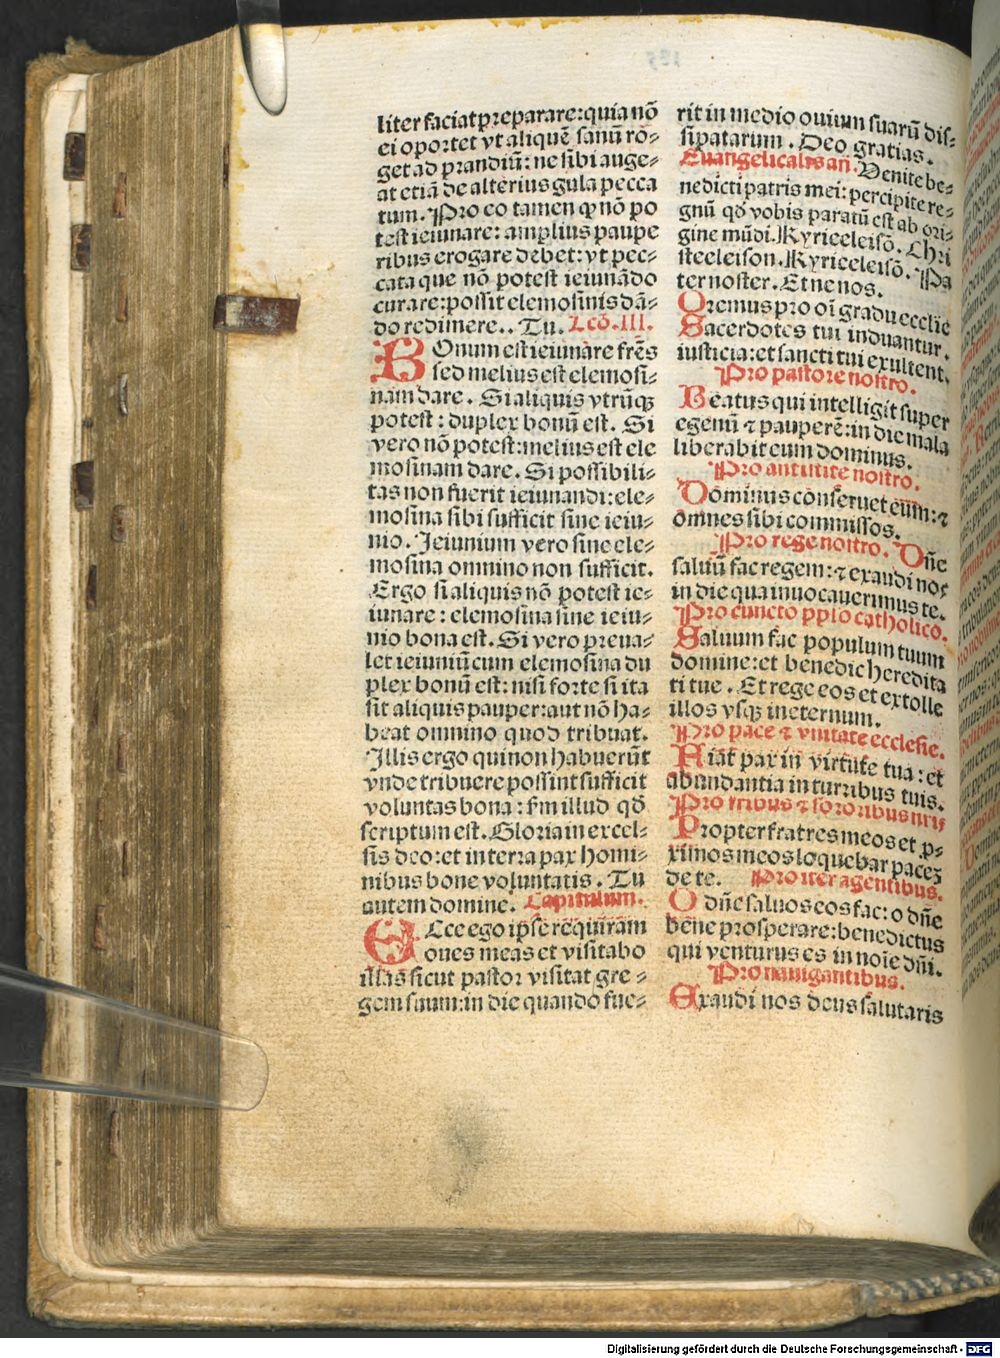 liter faciat preparare: quia nō
ei oportet vt aliquē sanū ro⸗
get ad prandiū: ne sibi auge⸗
at etiā de alterius gula pecca
tum. Pro eo tamen ꝙ nō po
test ieiunare: amplius paupe
ribus erogare debet: vt pec⸗
cata que nō potest ieiunādo
curare: possit elemosinis dā⸗
do redimere.. Tu. Lcō. III.
BOnum est ieiunare frēs
sed melius est elemosi⸗
nam dare. Si aliquis vtrūqꝫ
potest: duplex bonū est. Si
vero nō potest: melius est ele
mosinam dare. Si possibili⸗
tas non fuerit ieiunandi: ele⸗
mosina sibi sufficit sine ieiu⸗
nio. Ieiunium vero sine ele⸗
mosina omnino non sufficit.
Ergo si aliquis nō potest ie⸗
iunare: elemosina sine ieiu⸗
nio bona est. Si vero preua⸗
let ieiuniū cum elemosina du
plex bonū est: nisi forte si ita
sit aliquis pauper: aut nō ha⸗
beat omnino quod tribuat.
Illis ergo qui non habuerūt
vnde tribuere possint sufficit
voluntas bona: s̄m illud qd̄
scriptum est. Gloria in excel⸗
sis deo: et in terra pax homi⸗
nibus bone voluntatis. Tu
autem domine. Capitulum.
ECce ego ipse requiram
oues meas et visitabo
illas sicut pastor visitat gre⸗
gem suum: in die quando fue⸗
rit in medio ouium suarū dis⸗
sipatarum. Deo gratias.
Euangelicalis añ. Venite be⸗
nedicti patris mei: percipite re⸗
gnū qd̄ vobis paratū est ab ori⸗
gine mūdi. Kyrieeleisō. Chri
steeleison. Kyrieeleisō. Pa
ter noster. Et ne nos.
Oremus pro oī gradu ecclie
Sacerdotes tui induantur.
iusticia: et sancti tui exultent.
Pro pastore nostro.
Beatus qui intelligit super
egenū ⁊ pauperē: in die mala
liberabit eum dominus.
Pro antistite nostro.
Dominus conseruet eum: ⁊
omnes sibi commissos.
Pro rege nostro. Dn̄e
saluū fac regem: ⁊ exaudi nos
in die qua inuocauerimus te.
Pro cuncto pplo catholico.
Saluum fac populum tuum
domine: et benedic heredita
ti tue. Et rege eos et extolle
illos vsqꝫ in eternum.
Pro pace ⁊ vnitate ecclesie.
Fiat pax in virtute tua: et
abundantia in turribus tuis.
Pro fribus ⁊ sororibus nr̄is
Propter fratres meos et p⸗
ximos meos loquebar pacē
de te. Pro iter agentibus.
O dn̄e saluos eos fac: o dn̄e
bene prosperare: benedictus
qui venturus es in noīe dn̄i.
Pro nauigantibus.
Exaudi nos deus salutaris
Digitalisierung gefördert durch die Deutsche Forschungsgemeinschaft - DFG